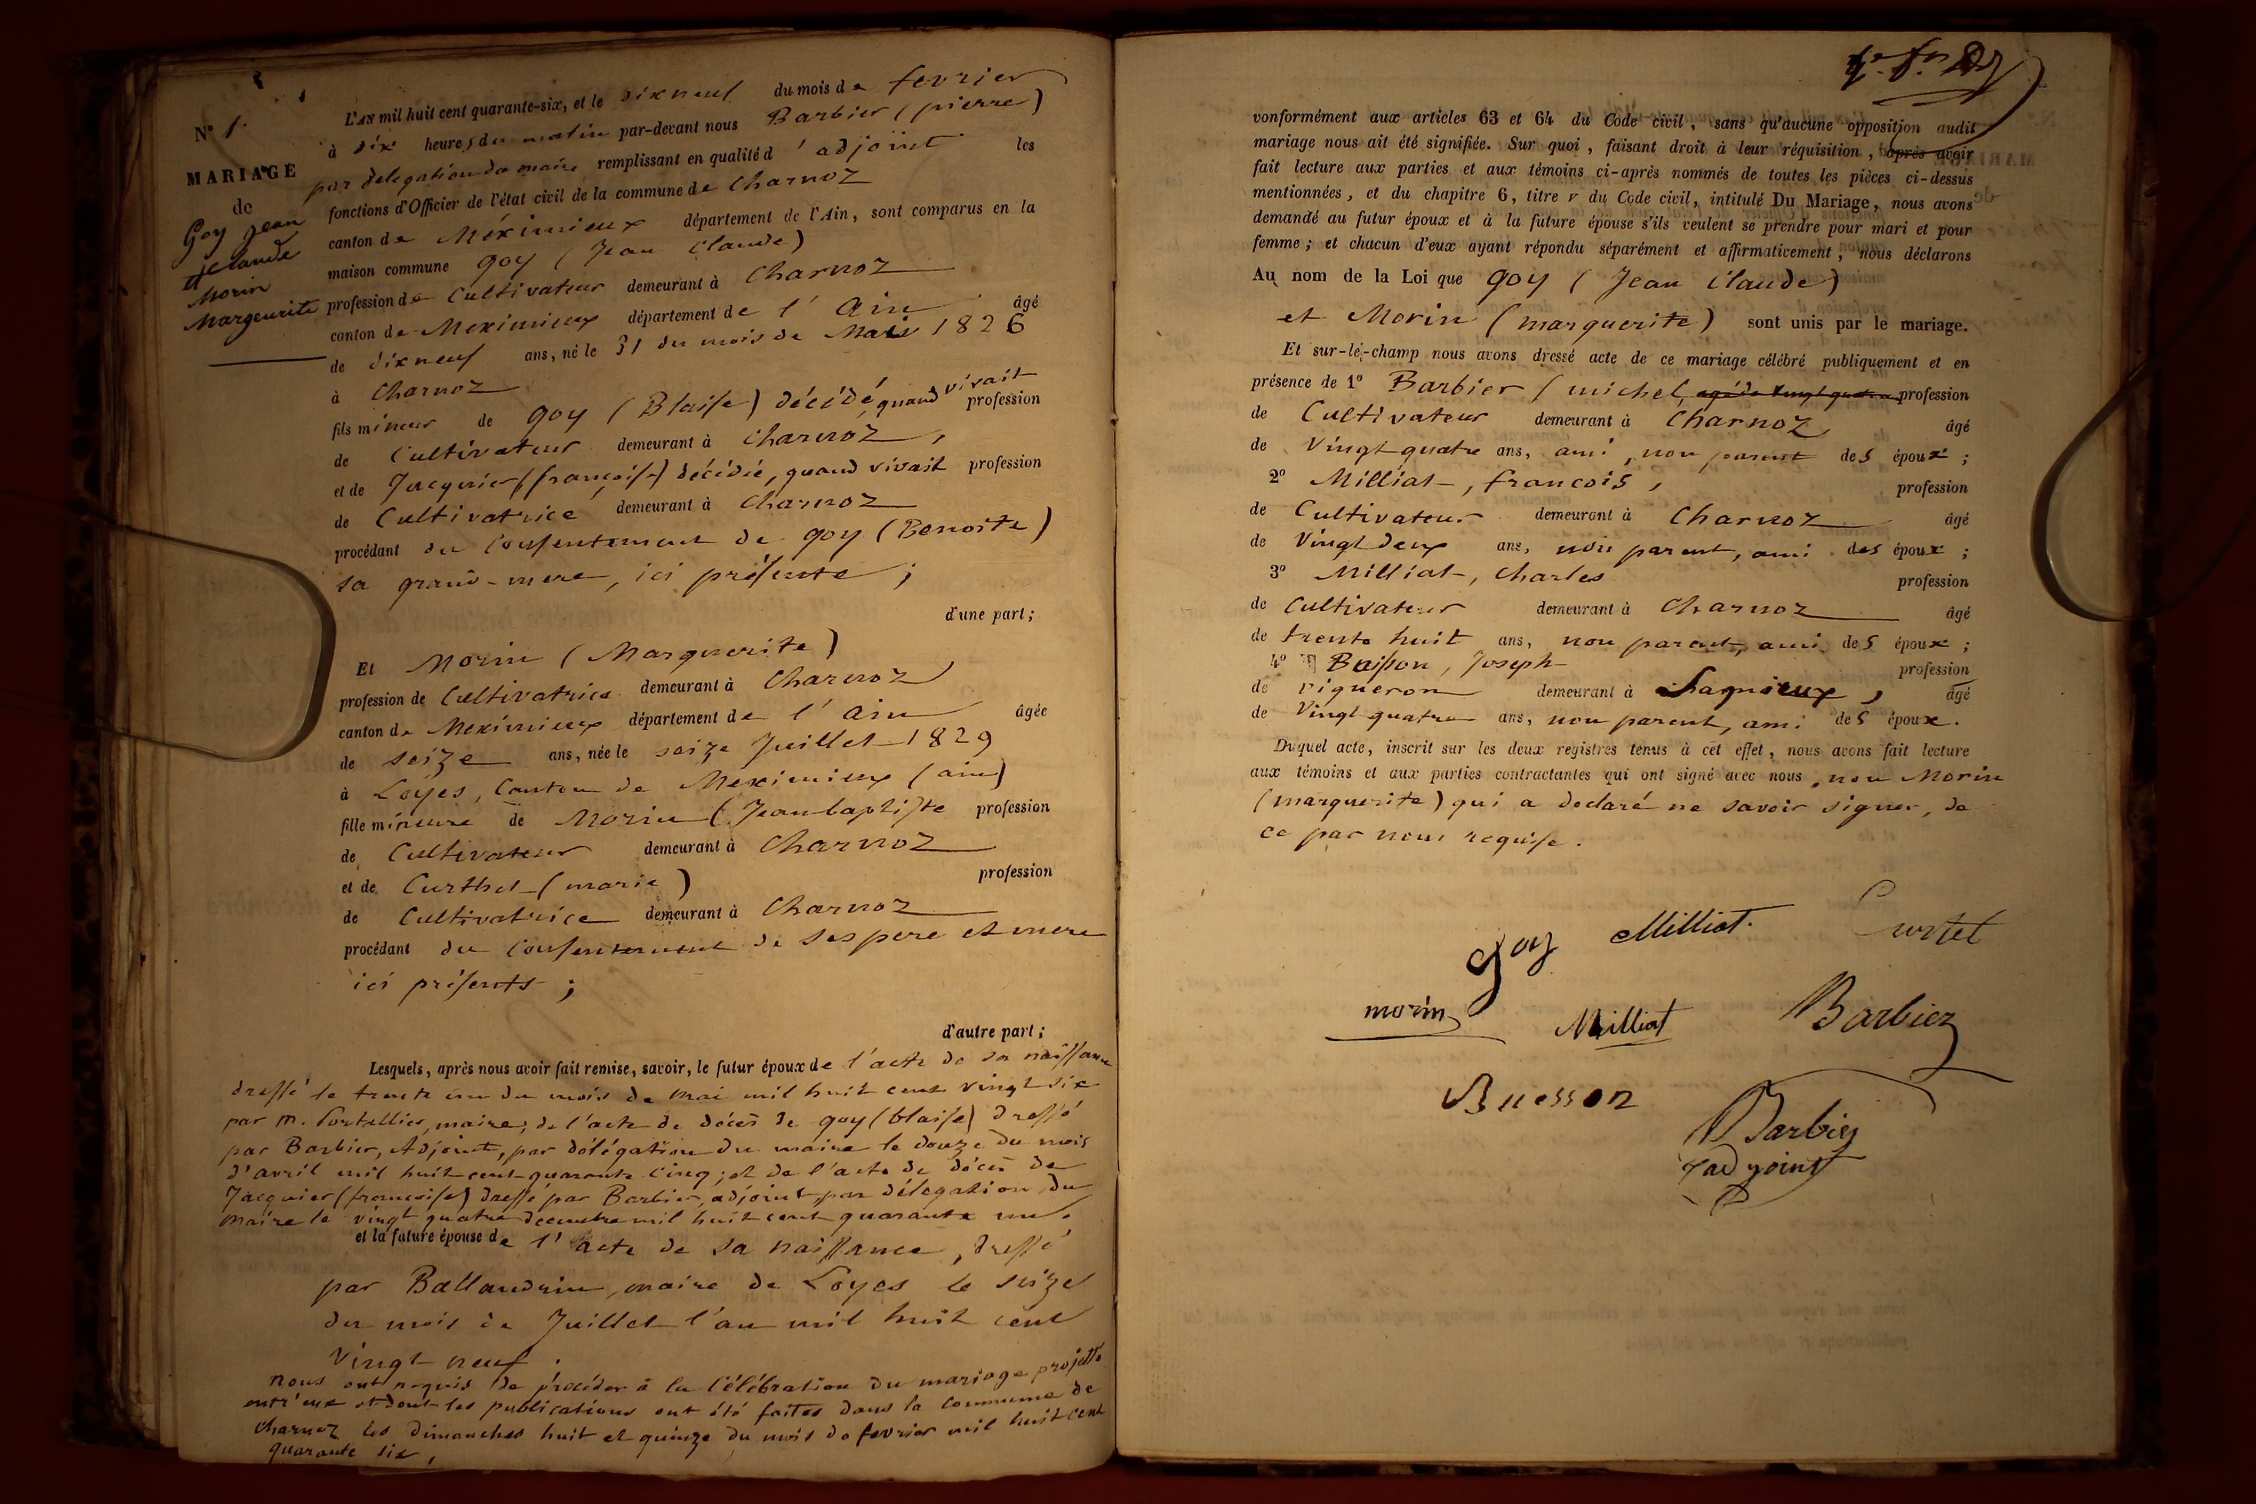 N° 1.
MARIAGE
de
Goy Jean
Claude
et
Morin
Margeurite
L'AN mil huit cent quarante-six, et le dixneuf du mois de fevrier
à dix heures du matin par-devant nous Barbier (pierre)
par delegation du maire remplissant en qualité d'adjoint les
fonctions d'Officier de l'état civil de la commune de Charnoz
canton de Méximieux département de l'Ain, sont comparus en la
maison commune goy (Jean Claude)
profession de Cultivateur demeurant à Charnoz
canton de Meximieux département de l'Ain âgé
de dixneuf ans, né le 31 du mois de Mai 1826
à Charnoz
fils mineur de goy (Blaise) décédé, quand vivait profession
de Cultivateur demeurant à Charnoz,
et de Jacquier (françoise) décédée, quand vivait profession
de Cultivatrice demeurant à Charnoz
procédant du Consentement de goy (Benoite)
sa grand-mere, ici présente ;
d'une part ;
Et Morin (Marguerite)
profession de Cultivatrice demeurant à Charnoz
canton de Meximieux département de l'Ain âgée
de seize ans, née le seize Juillet 1829
à Loyes, Canton de Meximieux (ain)
fille mineure de Morin (Jean baptiste profession
de Cultivateur demeurant à Charnoz
et de Curthet (marie) profession
de Cultivatrice demeurant à Charnoz
procédant du Consentement de ses pere et mere
ici présents ;
d'autre part ;
Lesquels, après nous avoir fait remise, savoir, le futur époux de l'acte de sa naissance
dressé le trente un du mois de mai mil huit cent vingt six
par m. Portallier, maire; de l'acte de décès de goy (blaise) dressé
par Barbier, Adjoint, par délégation du maire le douze du mois
d'avril mil huit cent quarante cinq; et de l'acte de décès de
Jacquier (francoise) dressé par Barbier, adjoint, par délegation du
maire le vingt quatre decembre mil huit cent quarante un.
et la future épouse de l'acte de sa naissance, dressé
par Ballandrin, maire de Loyes le seize
du mois de Juillet l'an mil huit cent
vingt neuf.
nous ont requis de procéder à la célébration du mariage projetté
entr'eux et dont les publications ont été faites dans la commune de
charnoz les dimanches huit et quinze du mois de fevrier mil huit cent
quarante six,
conformément aux articles 63 et 64 du Code civil, sans qu'aucune opposition audit
mariage nous ait été signifiée. Sur quoi, faisant droit à leur réquisition, après avoir
fait lecture aux parties et aux témoins ci-après nommés de toutes les pièces ci-dessus
mentionnées, et du chapitre 6, titre v du Code civil, intitulé Du Mariage, nous avons
demandé au futur époux et à la future épouse s'ils veulent se prendre pour mari et pour
femme ; et chacun d'eux ayant répondu séparément et affirmativement, nous déclarons
Au nom de la Loi que goy (Jean Claude)
et Morin (marguerite) sont unis par le mariage.
Et sur-le-champ nous avons dressé acte de ce mariage célébré publiquement et en
présence de 1° Barbier (michel, agé de vingt quatre profession
de Cultivateur demeurant à Charnoz âgé
de Vingt quatre ans, ami, non parent des époux ;
2° Milliat, francois, profession
de Cultivateur demeurant à Charnoz âgé
de Vingt deux ans, non parent, ami des époux ;
3° Milliat, Charles profession
de Cultivateur demeurant à Charnoz âgé
de trente huit ans, non parent, ami des époux ;
4° Buisson, Joseph profession
de vigneron demeurant à Lagnieux, âgé
de Vingt quatre ans, non parent, ami des époux.
Duquel acte, inscrit sur les deux registres tenus à cet effet, nous avons fait lecture
aux témoins et aux parties contractantes qui ont signé avec nous, non Morin
(marguerite) qui a declaré ne savoir signer, de
ce par nous requise.
goy Milliat. Curtet
morin Milliat Barbier
Buesson Barbier
adjoint